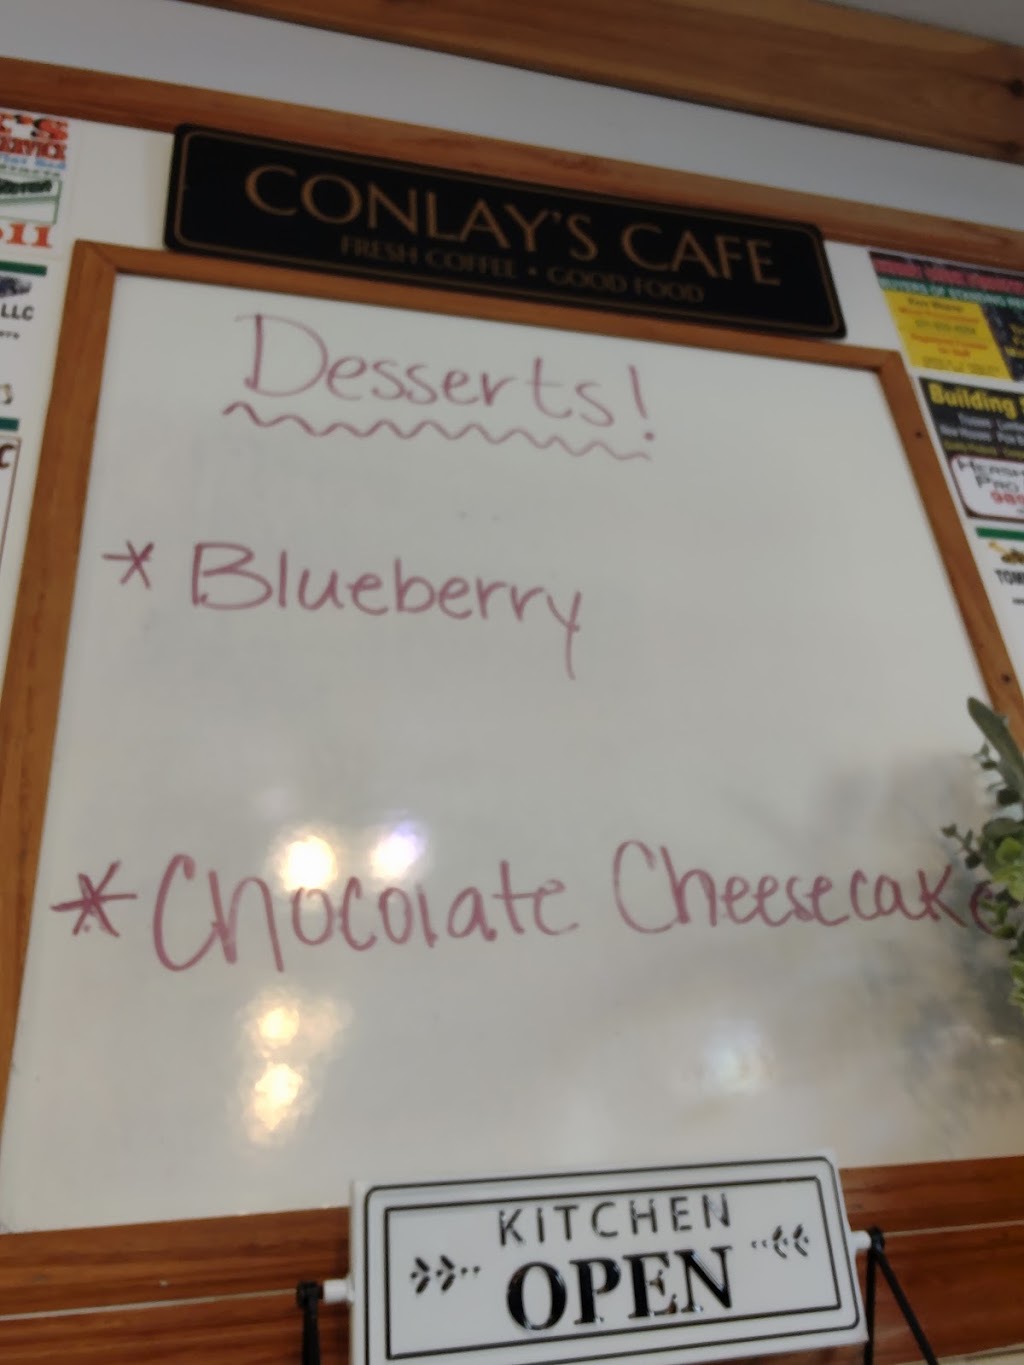 CONLAY'S CAFE
FRESH COFFEE • GOOD FOOD
Desserts!
* Blueberry
* Chocolate Cheesecake
KITCHEN
OPEN
LLC
Building
TOM